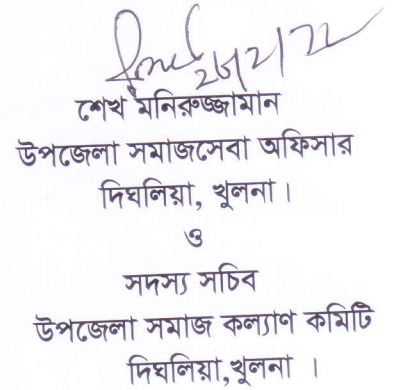 ২৮/২/২২
শেখ মনিরুজ্জামান
উপজেলা সমাজসেবা অফিসার
দিঘলিয়া, খুলনা ।
ও
সদস্য সচিব
উপজেলা সমাজ কল্যাণ কমিটি
দিঘলিয়া,খুলনা ।